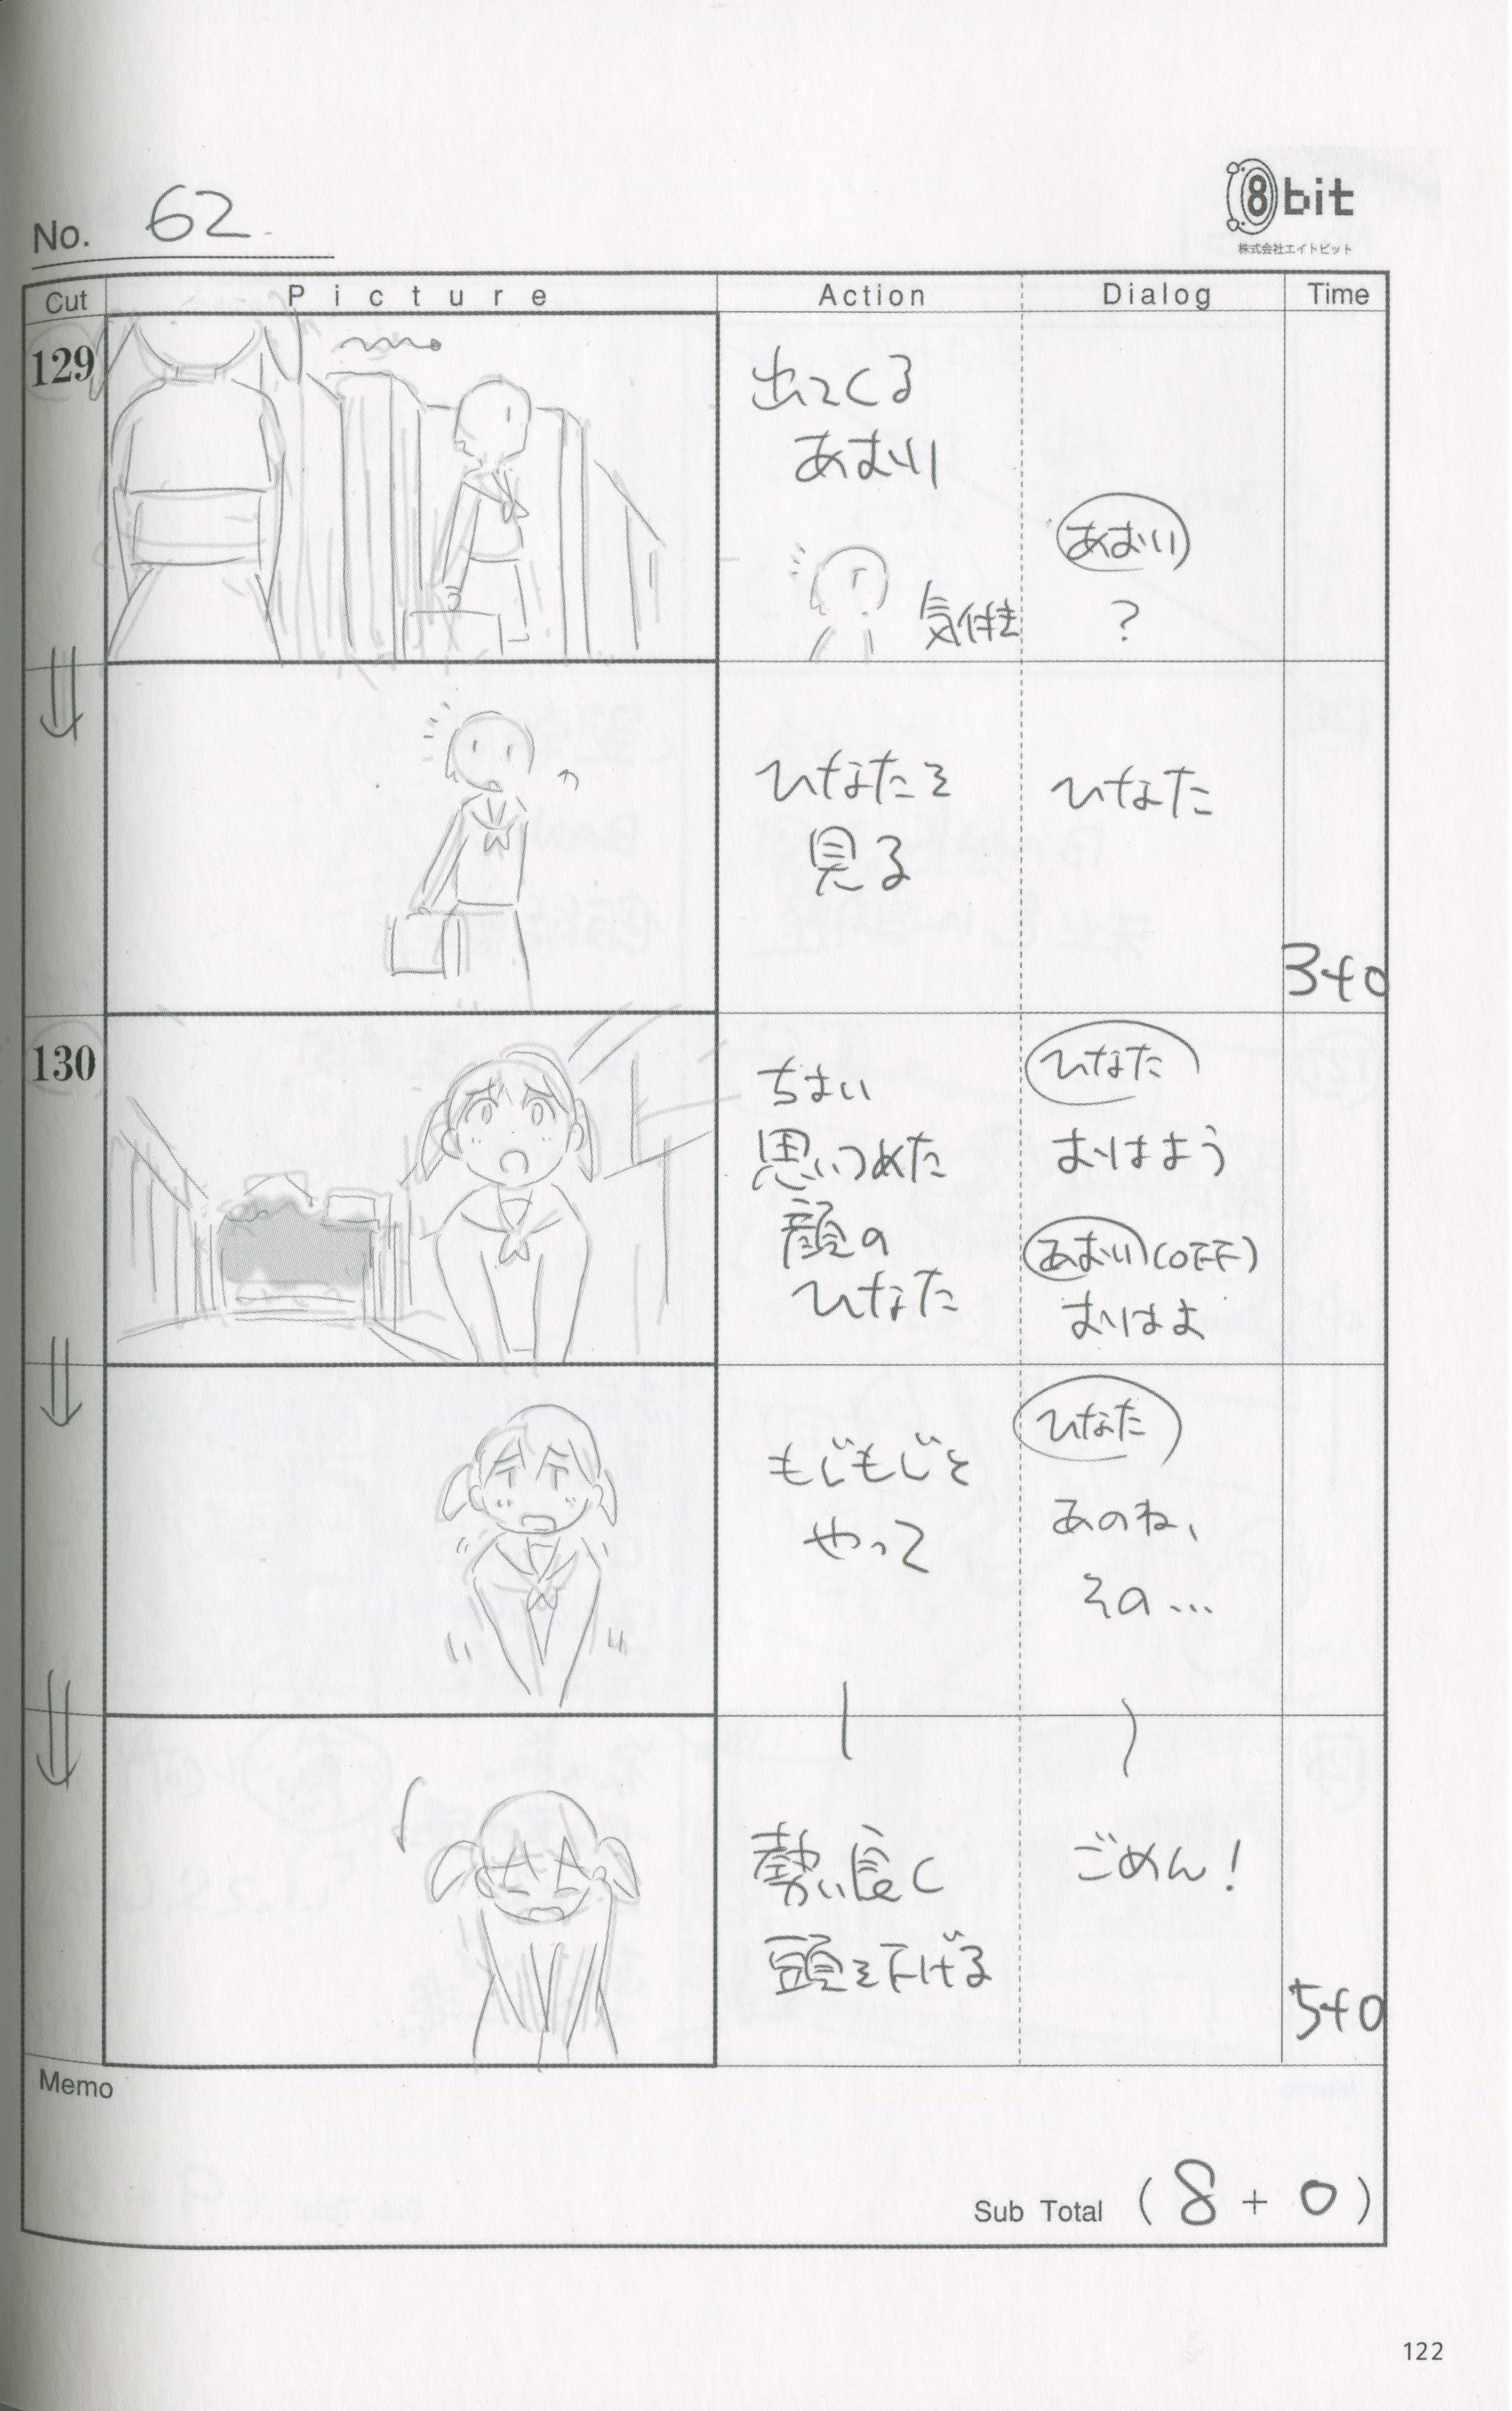 No. 62
8bit
株式会社エイトビット
Cut
Picture
Action
Dialog
Time
129
出てくる
あおい
気付き
あおい
?
ひなたを
見る
ひなた
3+0
130
ちょい
思いつめた
顔の
ひなた
ひなた
おはよう
あおい(OFF)
おはよ
もじもじと
やって
ひなた
あのね、
その…
勢い良く
頭を下げる
ごめん!
5+0
Memo
Sub Total (8+0)
122